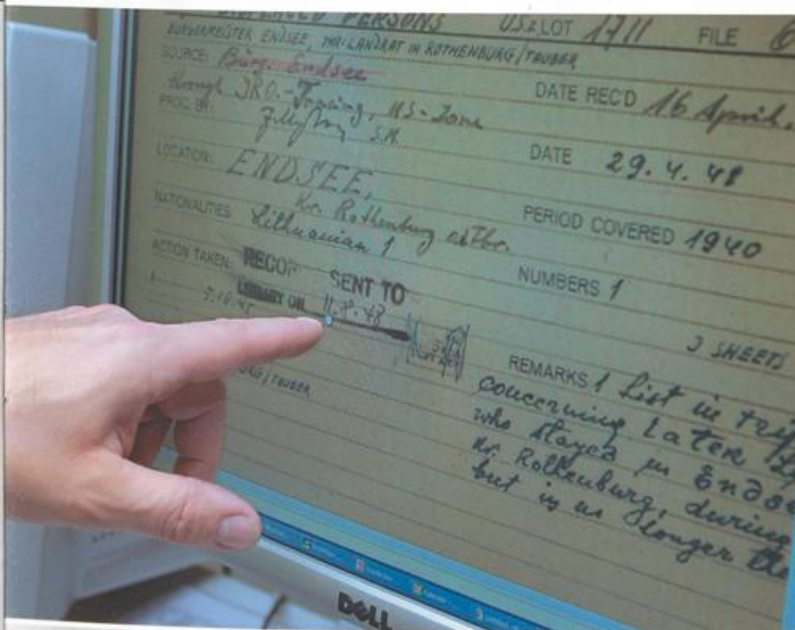 DISPLACED PERSONS USZ LOT 1711 FILE 6
BÜRGERMEISTER ENDSEE, LANDRAT in ROTHENBURG/TAUBER
SOURCE: Bürg. Endsee
through IRO.-Tracing, US-Zone
DATE REC'D 16 April.
PROC. BY: DATE 29.4.48
LOCATION: ENDSEE,
Kr. Rothenburg
PERIOD COVERED 1940
NATIONALITIES: Lithuanian 1 NUMBERS 1
ACTION TAKEN: SENT TO
LIBRARY ON 11.8.48
2 SHEETS
REMARKS 1 List in
concerning Later
who stayed in
Kr. Rothenburg, during
but is no longer
DELL